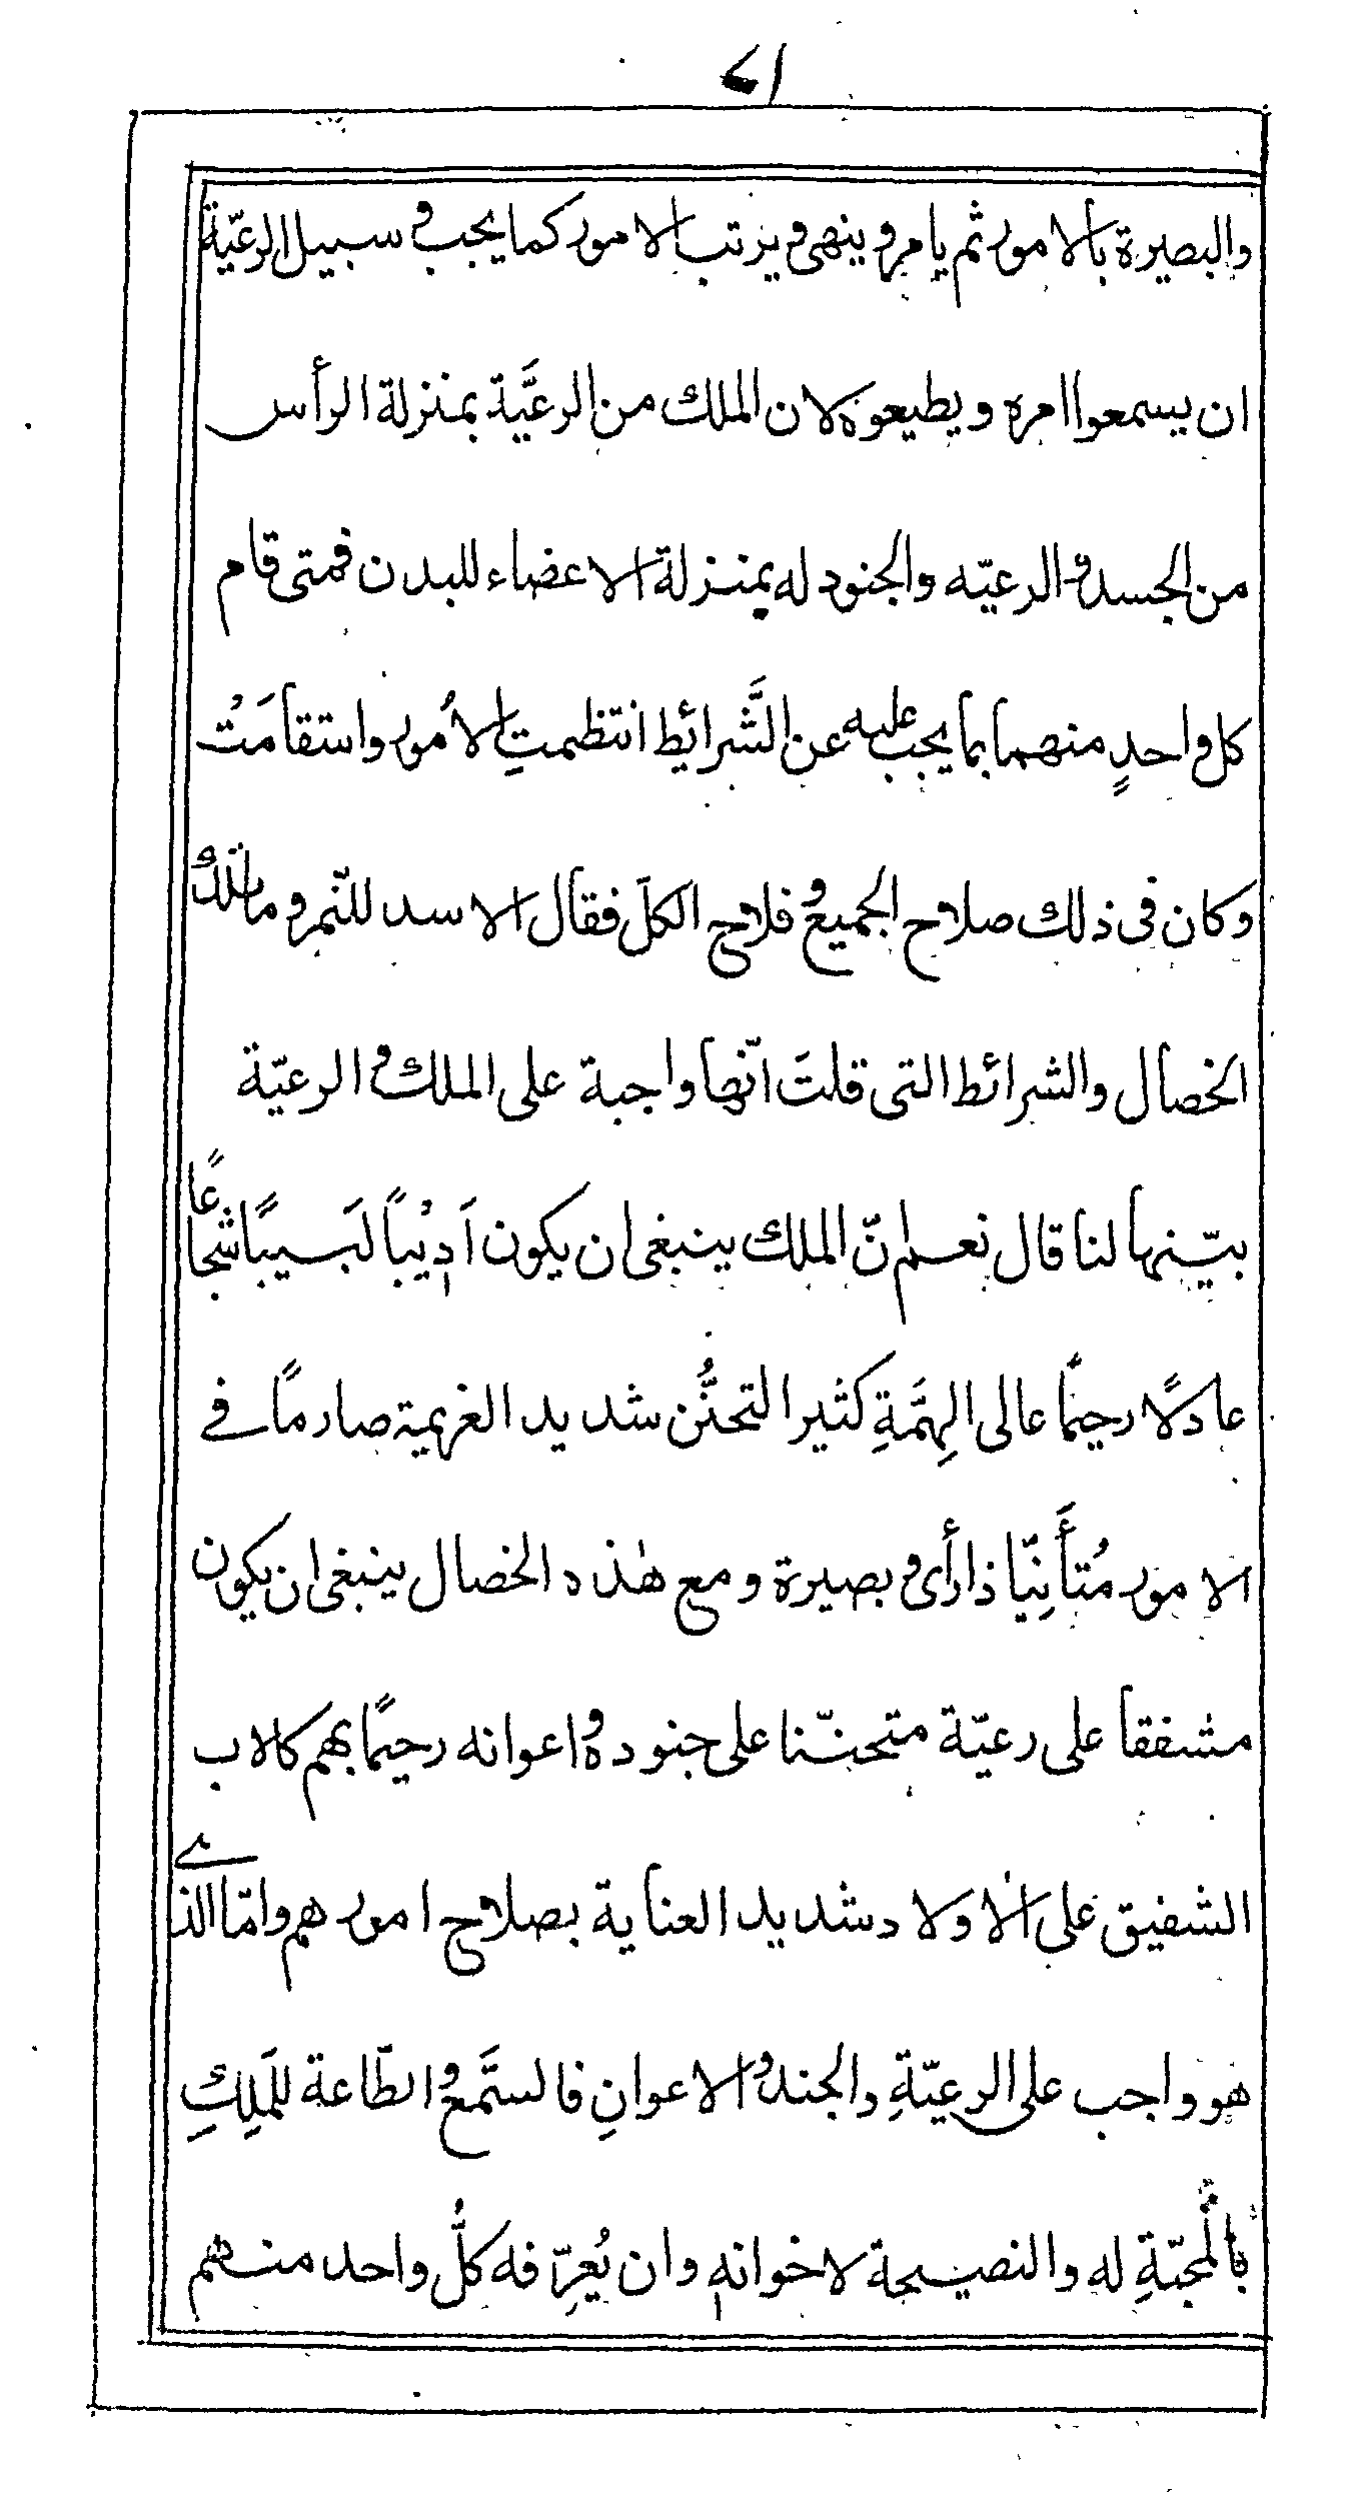 والبصيرة بالامور ثم يامر وينهى ويرتب الامور كما يجب و سبيل الرعيّة
ان يسمعوا امره ويطيعوه لان الملك من الرعيَّة بمنزلة الرأس
من الجسد و الرعيّه والجنود له بمنزلة الاعضاء للبدن فمتى قام
كل واحدٍ منهما بما يجب عليه عن الشَّرائط انتظمتِ الأمور واستقامَتْ
وكان فى ذلك صلاح الجميع و فلاح الكلّ فقال الاسد للنّمر وما تلك
الخصال والشرائط التى قلتَ انّها واجبة على الملك و الرعيّة
بيّنها لنا قال نعم انّ الملك ينبغى ان يكون اَدِيْباً لَبسيبًا شجاعًا
عادلًا رحيمًا عالى الهِمَّةِ كثير التحنُّن شديد العزيمة صارمًا فے
الامور مُتأَنِيّا ذا رأى و بصيرة ومع هٰذه الخصال ينبغى ان يكون
مشفقا على رعيّة متحنّنا على جنوده و اعوانه رحيمًا بهم كالاب
الشفيق على الاولاد شديد العناية بصلاح امورهم وامّا الذے
هو واجب على الرعيّةِ والجند و الاعوانِ فالسَّمع و الطّاعة للمَلِكِ
بالمحبّةِ له والنصيحة لاخوانه وان يُعِرّفه كلُّ واحد منهم